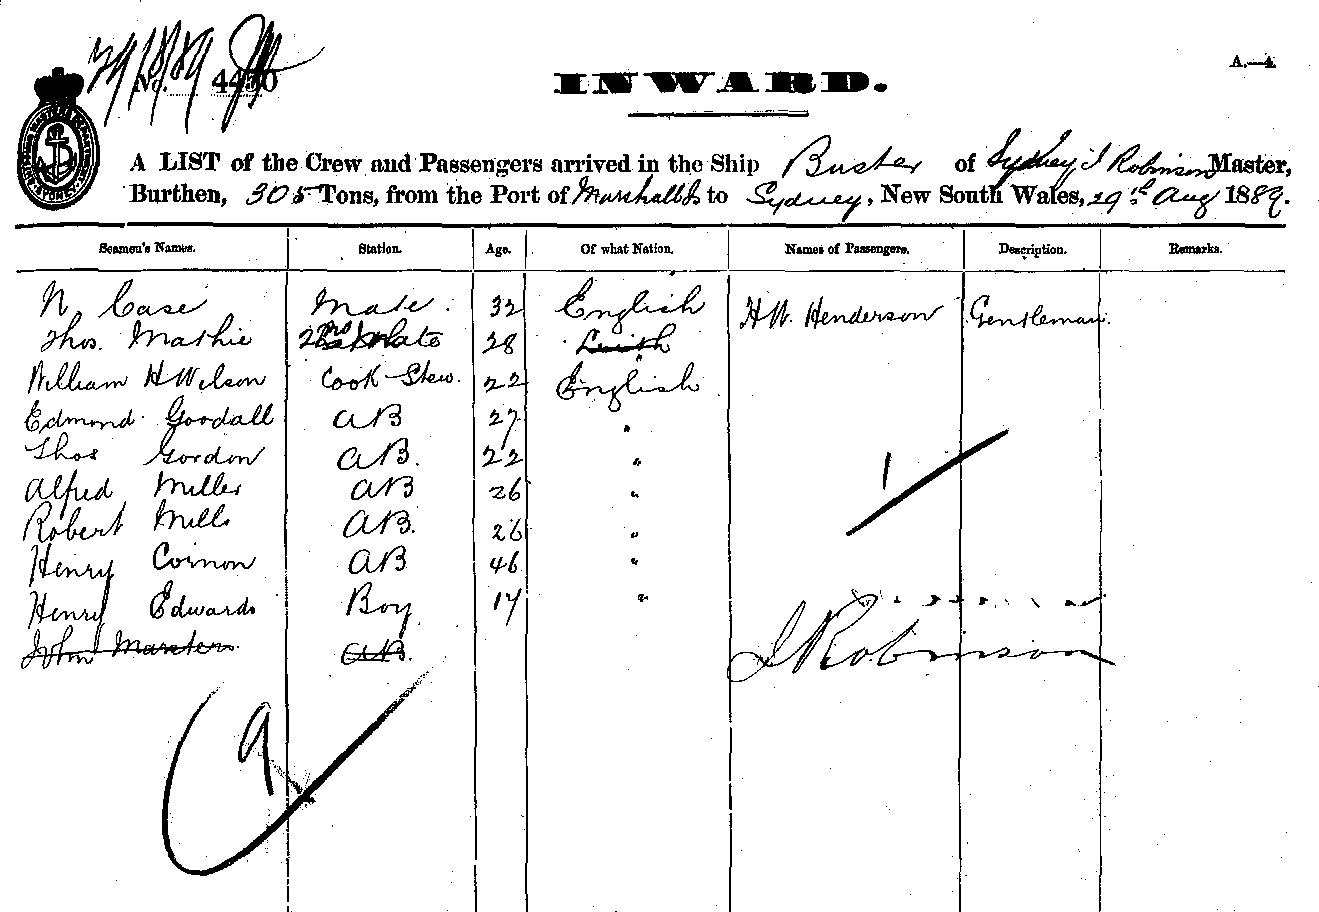 29/8/89
No. 4430
INWARD.
A.—4.
A LIST of the Crew and Passengers arrived in the Ship Buster of Sydney, J Robinson Master,
Burthen, 305 Tons, from the Port of Marshall Is to Sydney, New South Wales, 29th Aug 1889.
Seamen's Names. Station. Age. Of what Nation. Names of Passengers. Description. Remarks.
N Case Mate. 32 English H W. Henderson Gentleman.
Thos. Mathie 2nd Mate 28 Leith
William H Wilson Cook Stew. 22 English
Edmond Goodall AB 27 "
Thos Gordon AB. 22 "
Alfred Miller AB 26 "
Robert Mills AB. 26 "
Henry Coinon AB 46 "
Henry Edwards Boy 17 "
John Marsters AB.
1
J Robinson
9